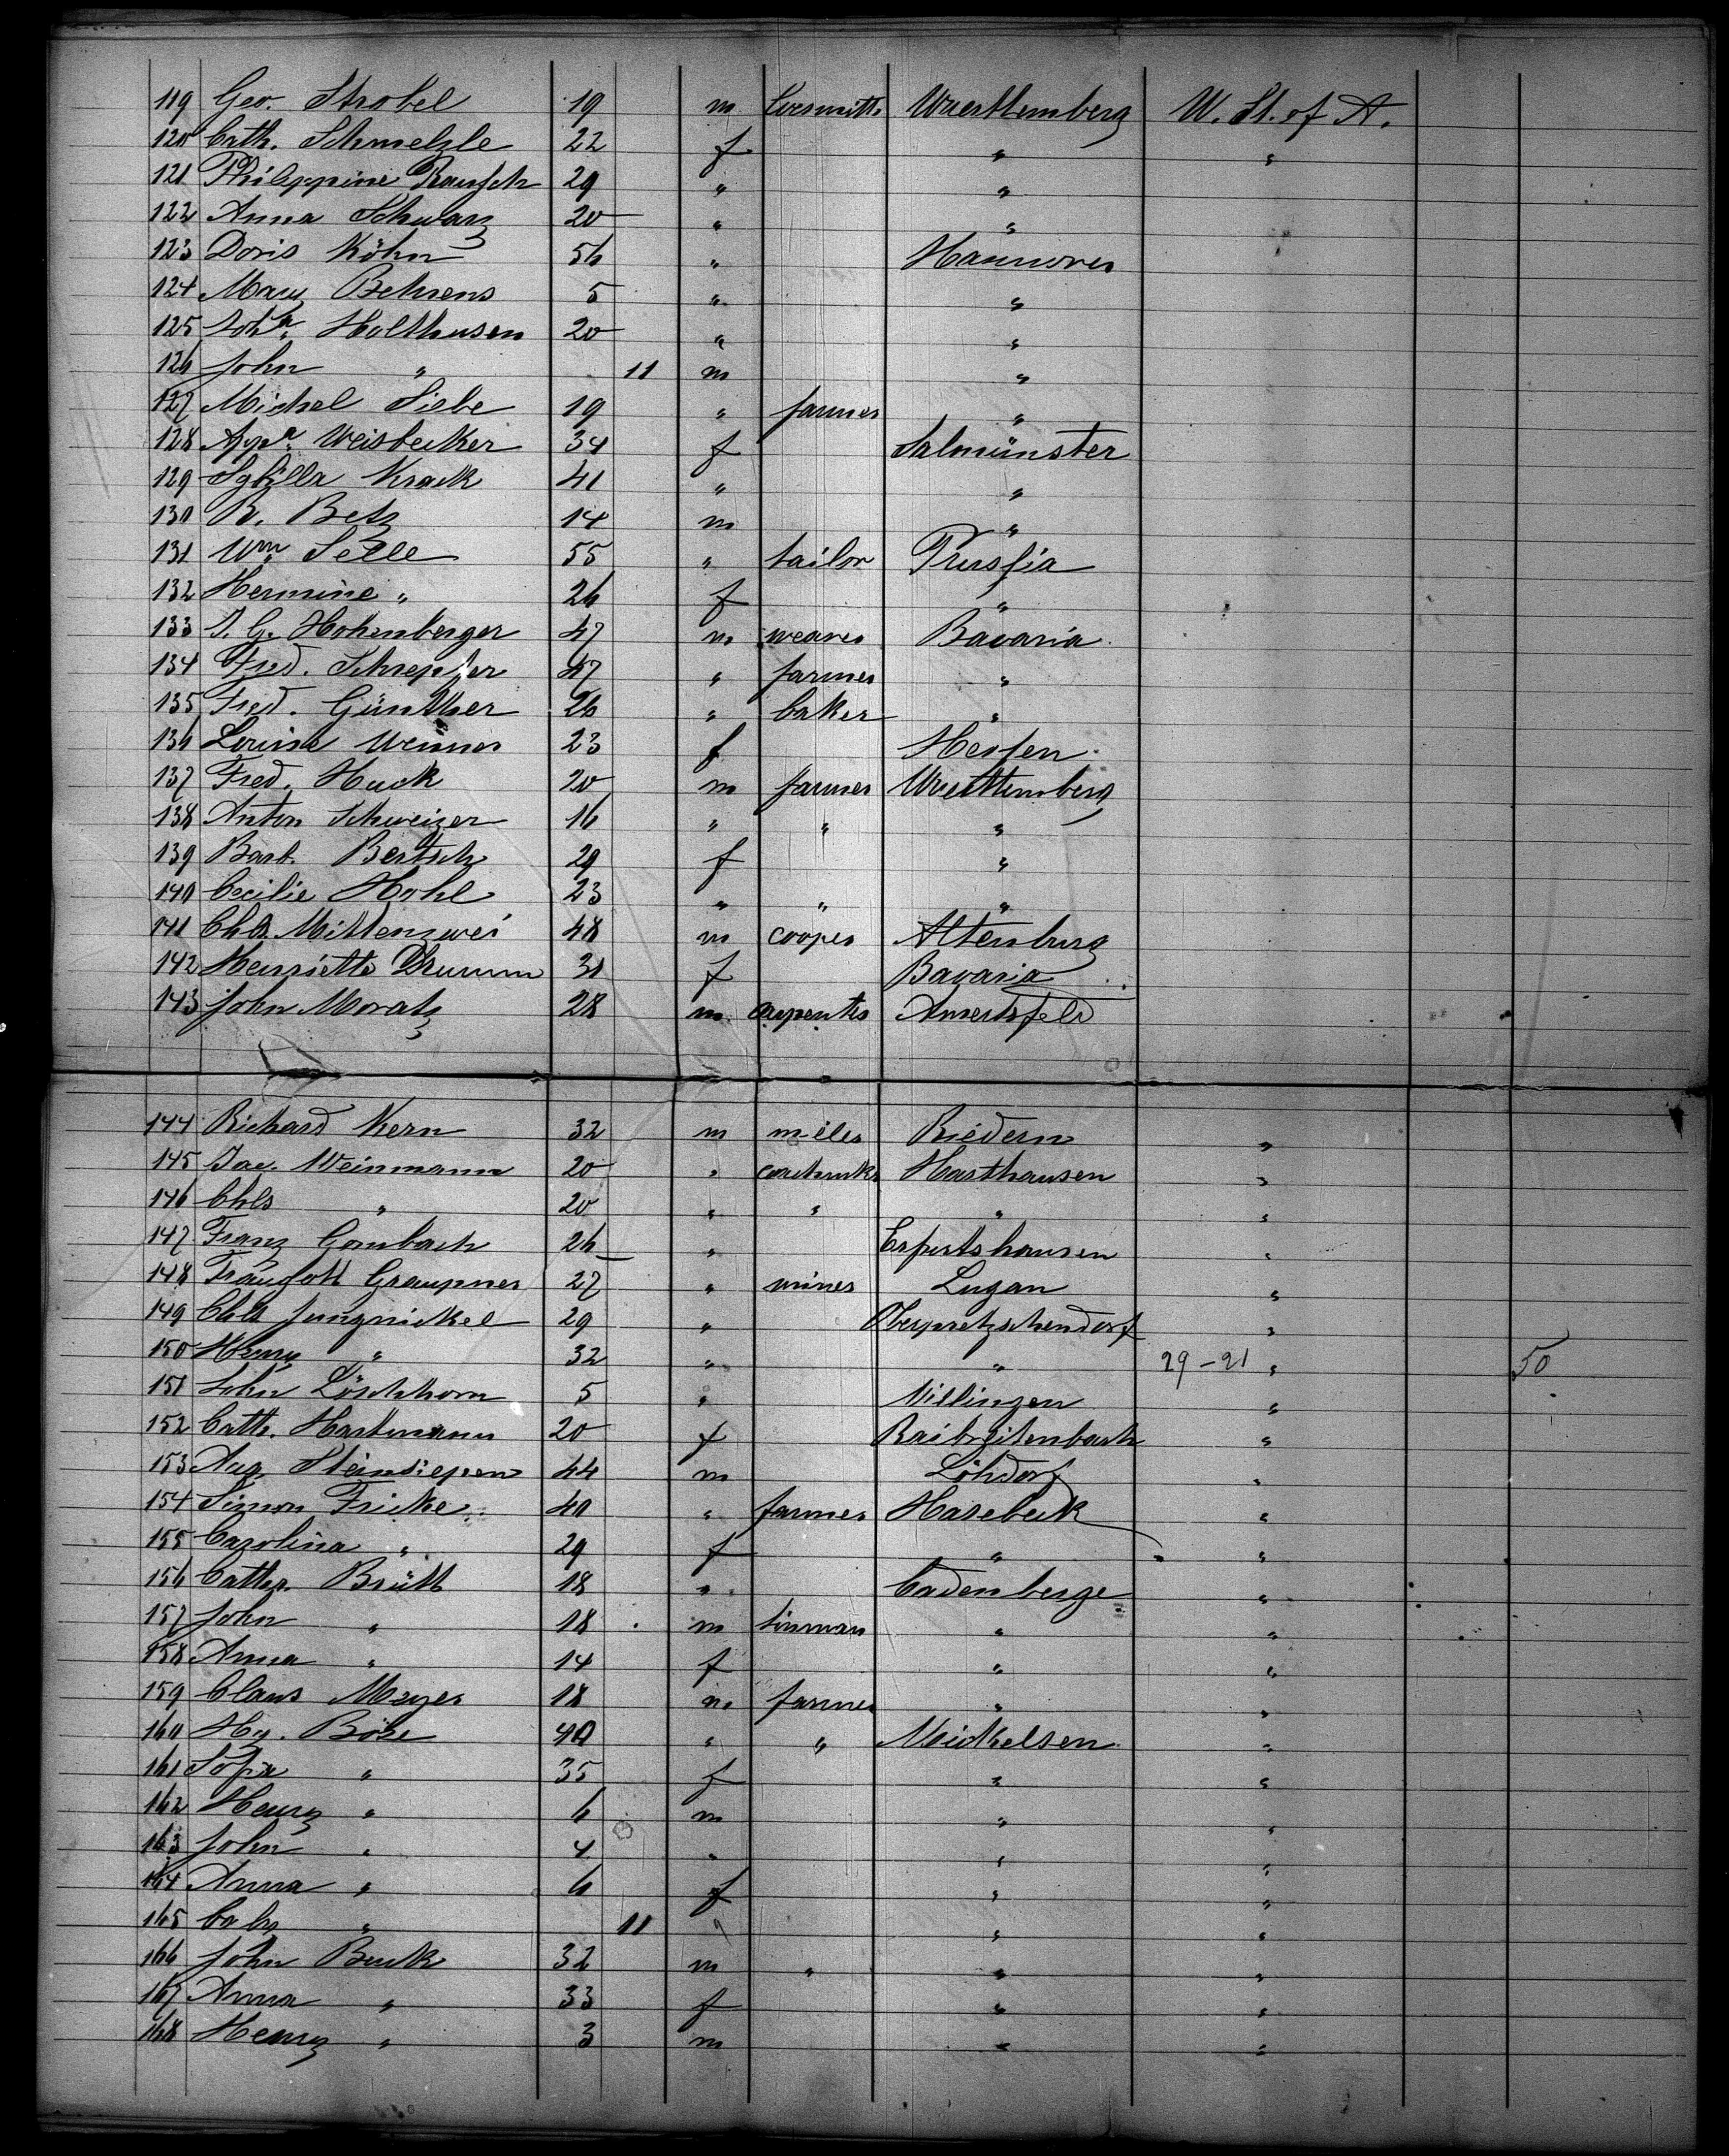 119 Geo. Strobel 19 m Wuerttemberg U. St. of A.
120 Cath. Schmelzle 22 f " "
121 Philippine Rausch 29 " "
122 Anna Schwarz 20 " "
123 Doris Köhn 56 " Hannover
124 Mary Behrens 5 " "
125 Joha. Holthusen 20 " "
126 John " 11 m "
127 Michel Siebe 19 " farmer "
128 Appa. Weisbecker 34 f Salmünster
129 Sybilla Krack 41 " "
130 R. Betz 14 m "
131 Wm Selle 55 " tailor Prussia
132 Hermine " 26 f "
133 J. G. Hohenberger 47 m weaver Bavaria
134 Fred. Schrepfer 47 " farmer "
135 Fred. Günther 26 " baker "
136 Louise Weiner 23 f Hessen
137 Fred. Huck 20 m farmer Wuerttemberg
138 Anton Schweizer 16 " " "
139 Barb. Bertsch 29 f "
140 Cecilie Hohl 23 " " "
141 Chls. Mittenzwei 48 m cooper Altenburg
142 Henriette Krumm 31 f Bavaria
143 John Moratz 28 m carpenter Amertsfeld
144 Richard Kern 32 m miller Riedern "
145 Jac. Weinmann 20 " Harthausen "
146 Chls " 20 " " " "
147 Franz Gombach 26 " Erpertshausen "
148 Traugott Graupner 27 " miner Lugau "
149 Chls Jungnickel 29 " Oberpretzschendorf "
150 Henry " 32 " " 29-21 " 50
151 John Löschhorn 5 " Villingen "
152 Cath. Hartmann 20 f Raibreitenbach "
153 Aug. Steinsiepen 44 m Löhdorf "
154 Simon Fricke 40 " farmer Hasebeck "
155 Carolina " 29 f " "
156 Cathr. Brütt 18 " Cadenberge "
157 John " 18 m tinman " "
158 Anna " 14 f " "
159 Claus Meyer 18 m farmer " "
160 Hy. Böse 40 " " Midhelsen "
161 Sofia " 35 f " "
162 Henry " 6 m " "
163 John " 4 " " "
164 Anna " 6 f " "
165 baby " 11 " " "
166 John Buck 32 m " " "
167 Anna " 33 f " "
168 Henry " 3 m " "